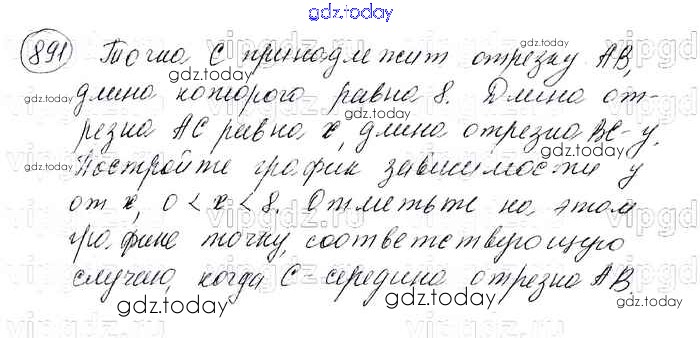 gdz.today
891 Точка С принадлежит отрезку АВ,
длина которого равна 8. Длина от-
резка АС равна х, длина отрезка ВС-у.
Постройте график зависимости у
от х, 0 < х < 8. Отметьте на этом
графике точку, соответствующую
случаю, когда С-середина отрезка АВ.
gdz.today